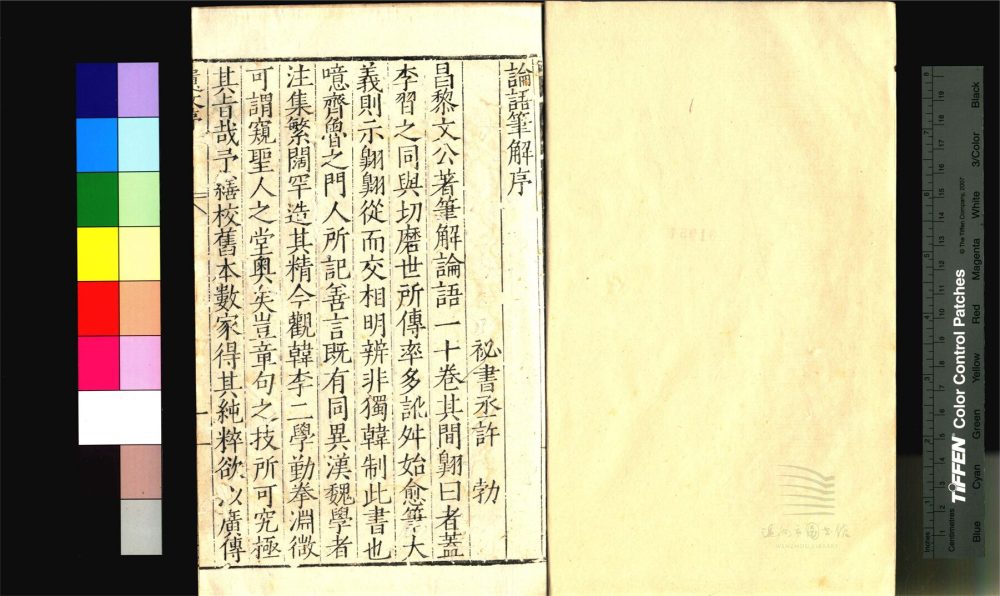 論語筆解序
祕書丞許 勃
昌黎文公著筆解論語一十卷其間翺曰者蓋
李習之同與切磨世所傳率多訛舛始愈筆大
義則示翺翺從而交相明辨非獨韓制此書也
噫齊魯之門人所記善言既有同異漢魏學者
注集繁闊罕造其精今觀韓李二學勤拳淵微
可謂窺聖人之堂奧矣豈章句之技所可究極
其旨哉予繕校舊本數家得其純粹欲以廣傳
温州市圖書館
WENZHOU LIBRARY
TIFFEN Color Control Patches
© The Tiffen Company, 2007
Inches
Centimetres
Blue Cyan Green Yellow Red Magenta White 3/Color Black